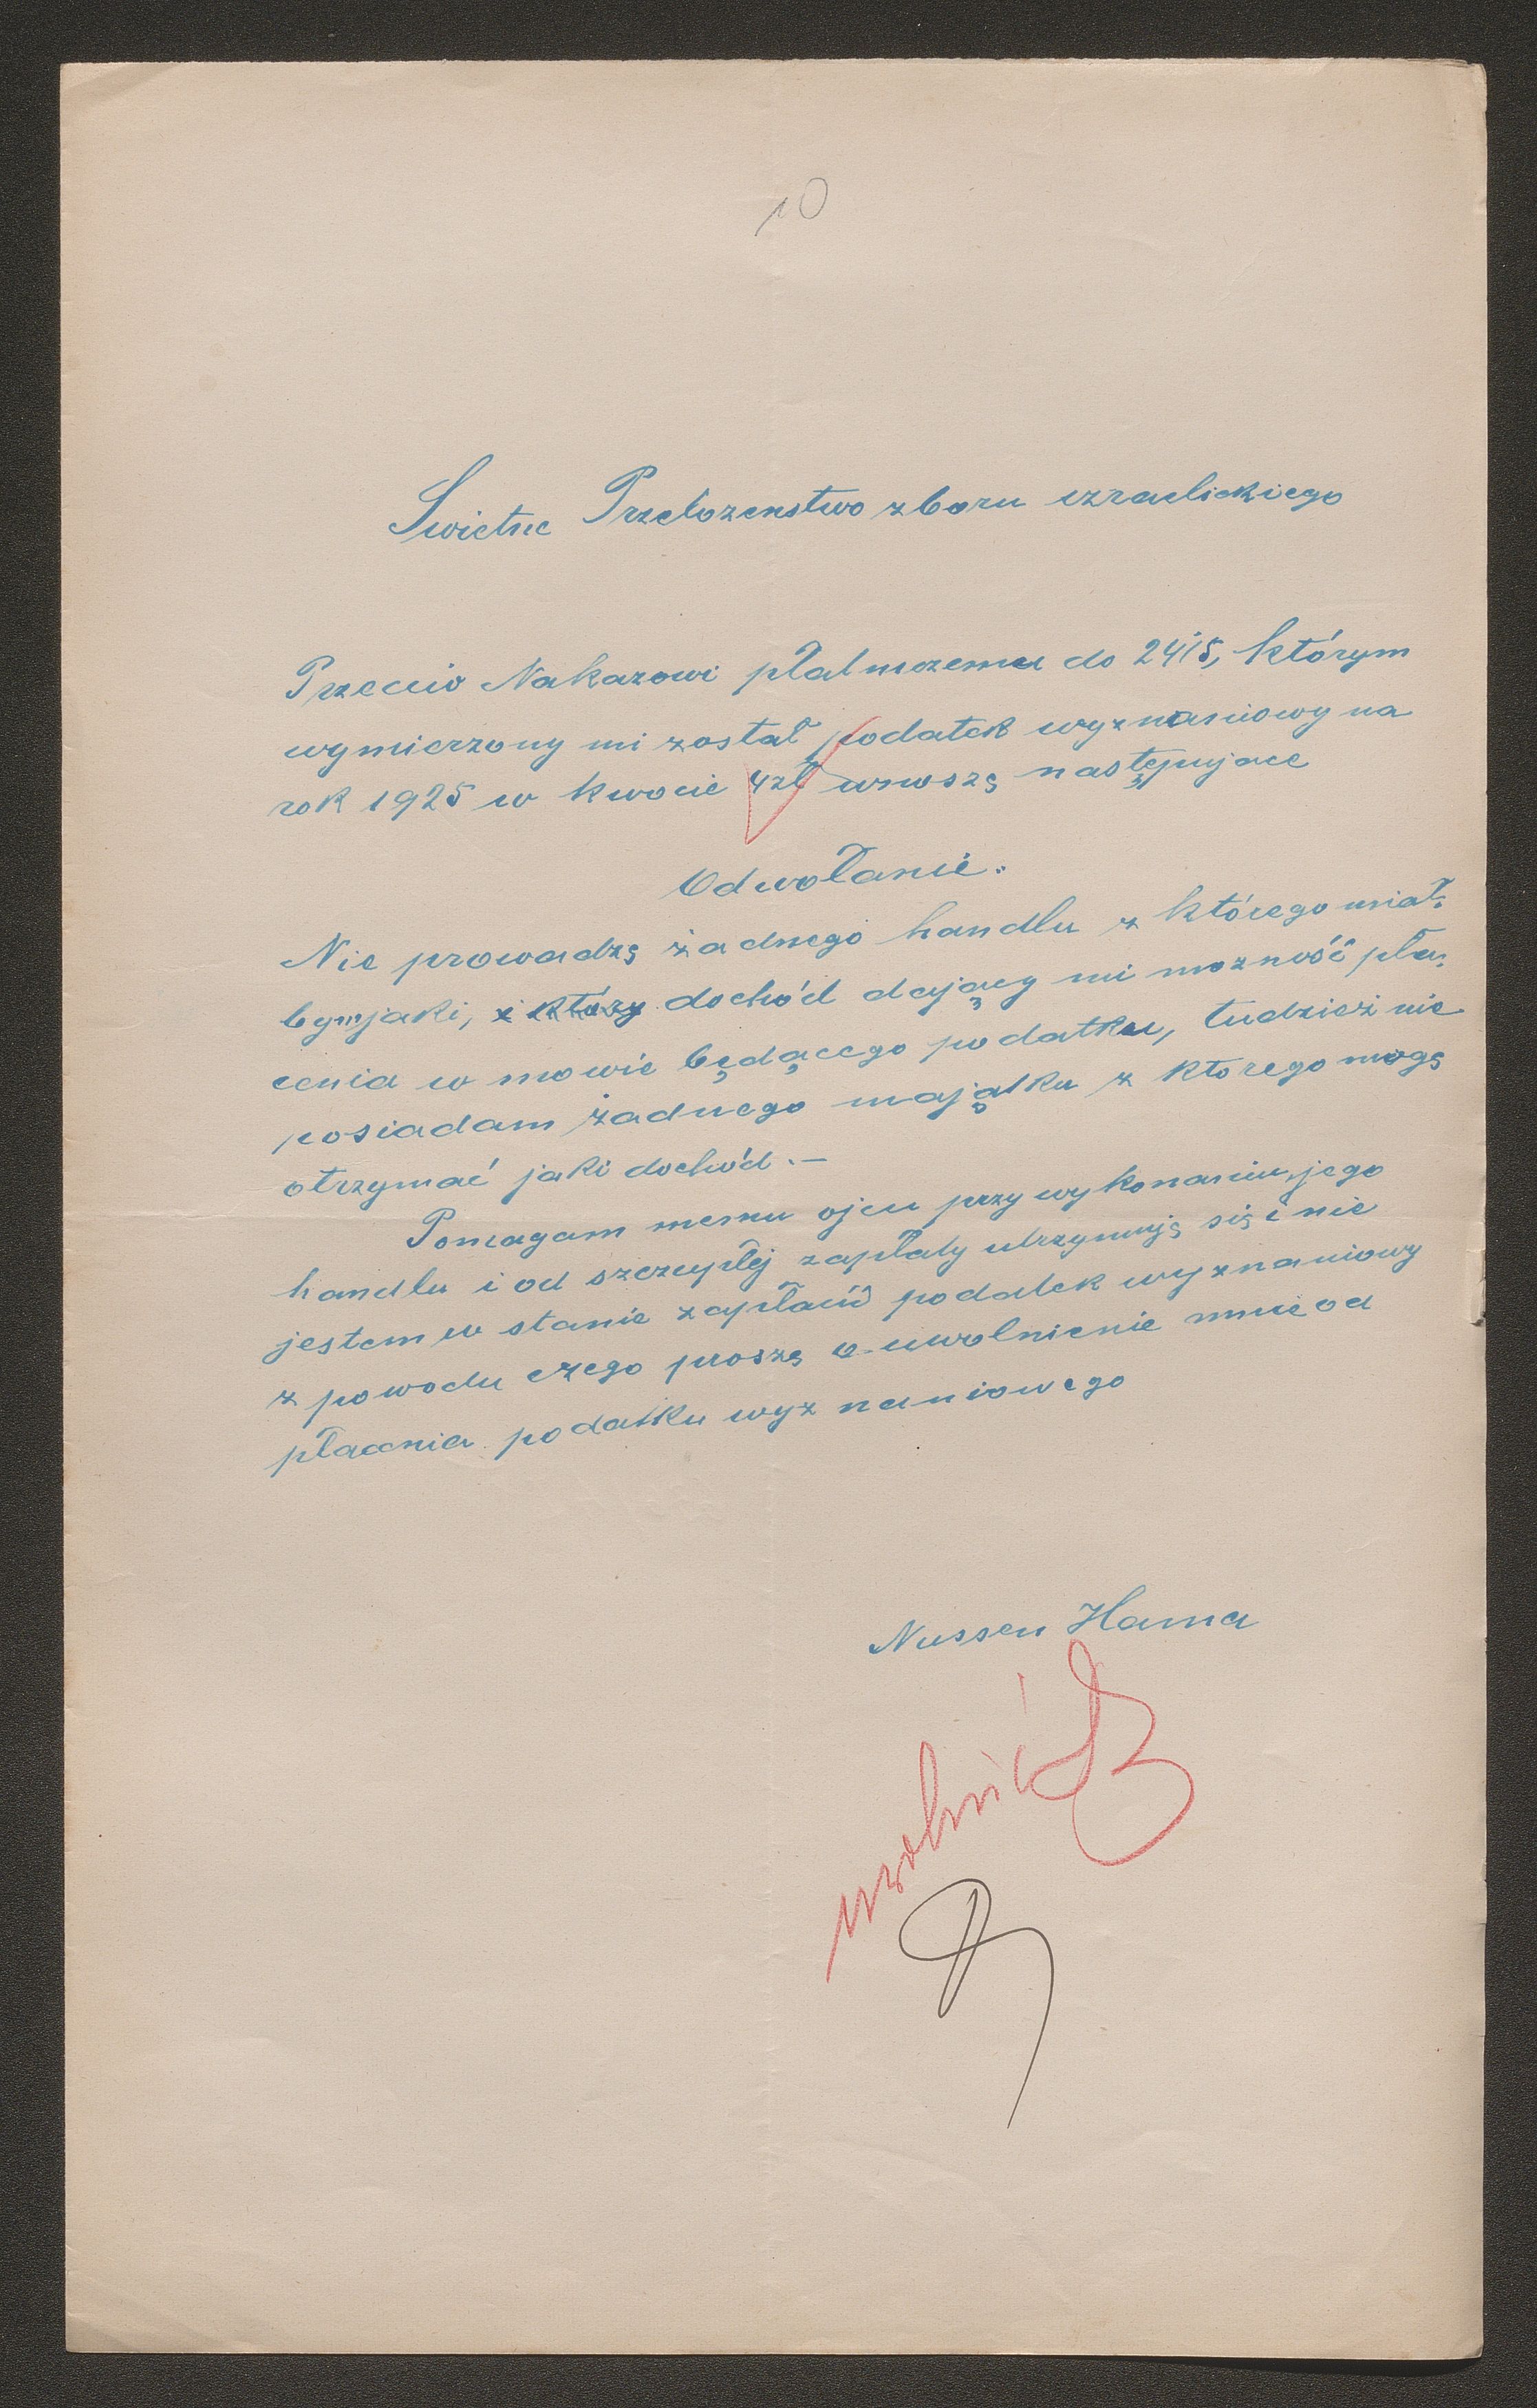 10
Swietne Przełozenstwo zboru izraelickiego
Przeciw Nakazowi płatniczemu do 24/5, którym
wymierzony mi został podatek wyznaniowy na
rok 1925 w kwocie 4zł wnoszę następujace
Odwołanie.
Nie prowadzę żadnego handlu z którego miał:
bym jaki, i który dochód dający mi mozność pła:
cenia w mowie będącego podatku, tudzież nie
posiadam żadnego majątku z ktorego mogę
otrzymać jaki dochód. —
Pomagam memu ojcu przy wykonaniu jego
handlu i od szczupłej zapłaty utrzymuję się i nie
jestem w stanie zapłacić podatek wyznaniowy
z powodu czego proszę o uwolnienie mnie od
płacenia podatku wyznaniowego
Nussen Hama
uwolnić